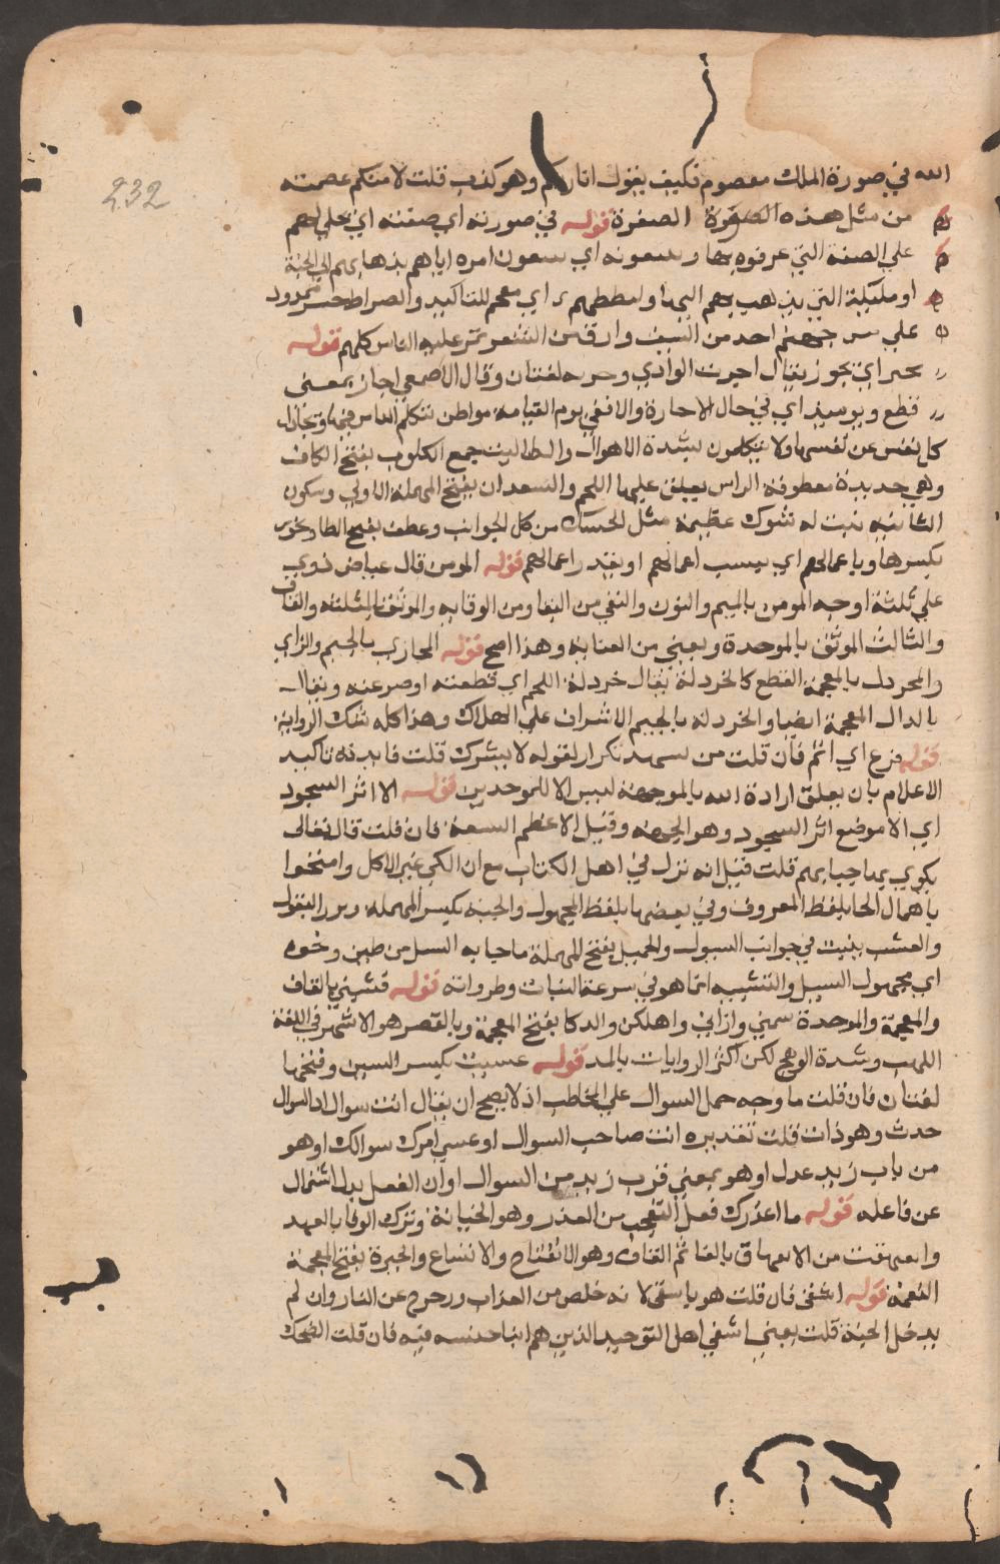 232
الله في صورة الملك معصوم فكيف يقول انا ربكم وهو كذب قلت لا منكم عصمته
من مثل هذه الصغرة الصغرة قوله في صورته اي صفته اي يتجلى لهم
على الصفة التي عرفوه بها ويتبعونه اي يتبعون امره اياهم بذهابهم الى الجنة
او ملئكته التي يذهب بهم اليها اي معجم للتاكيد والصراط جسر ممدود
على جهنم احد من السيف وارق من الشعر تمر عليه الناس كلهم قوله
يجيز اي يجوز يقال اجزت الوادي وجزته لغتان وقال الاصمعي اجاز بمعنى
قطع ويوميذ اي في حال الاجازة والا ففي يوم القيامة مواطن تتكلم الناس فيها وتجادل
كل نفس عن نفسها ولا يتكلمون لشدة الاهوال والكلاليب جمع الكلوب بفتح الكاف
وهي حديدة معطوفة الراس يعلق عليها اللحم والسعدان بفتح المهملة الاولى وسكون
الثانية نبت له شوك عظيمة مثل الحسك من كل الجوانب وخطف بفتح الطا ويجوز
بكسرها وباعمالهم اي بسبب اعمالهم او بقدر اعمالهم قوله المومن قال عياض روي
على ثلثة اوجه المومن بالميم والنون والتقي من البقا ومن الوقاية والموثق بالمثلثة والقاف
والثالث الموبق بالموحدة ويعني من العناية وهذا اصح قوله المجازى بالجيم والزاي
والمخردل بالمعجمة القطع كالخردلة يقال خردلة اللحم اي قطعته او صرعته ويقال
بالدال المعجمة ايضا والخردلة بالجيم الاشراف على الهلاك وهذا كله شك الرواية
قوله فرغ اي اتم فان قلت من يشهد تكرار لقوله لا يشرك قلت فايدته تاكيد
الاعلام بان يعلق ارادة الله بالموجهة ليس الا للموحدين قوله الا اثر السجود
اي الا موضع اثر السجود وهو الجبهة وقيل الاعظم السبعة فان قلت قال تعالى
يكوى بها جباههم قلت قيل انه نزل في اهل الكتاب مع ان الكي غير الاكل وامتحشوا
باهمال الحا بلفظ المعروف وفي بعضها بلفظ المجهول والحبة بكسر المهملة بزر البقول
والعشب ينبت في جوانب السيول والحميل بفتح المهملة ما جا به السيل من طين ونحوه
اي محمول السيل والتشبيه انما هو في سرعة النبات وطراوته قوله قشبني بالقاف
والمعجمة والموحدة سمني واذاني واهلكني والذكا بفتح المعجمة وبالقصر هو الاشهر في اللغة
اللهب وشدة الوهج لكن اكثر الروايات بالمد قوله عسيت بكسر السين وفتحها
لغتان فان قلت ما وجه حمل السوال على المخاطب اذ لا يصح ان يقال انت سوال اذ السوال
حدث وهو ذات قلت تقديره انت صاحب السوال او عسى امرك سوالك او هو
من باب زيد عدل او هو بمعنى قرب زيد من السوال او ان الفعل بدل اشتمال
عن فاعله قوله ما اغدرك فعل التعجب من الغدر وهو الخيانة وترك الوفا بالعهد
وانفهقت من الانفهاق بالفا ثم القاف وهو الانفتاح والاتساع والحبرة بفتح المعجمة
النعمة قوله اشقى فان قلت هو ياسقي لا نه خلص من العذاب وزحزح عن النار وان لم
يدخل الجنة قلت يعني اشقى اهل التوحيد الذين هم ابنا جنسه فيه فان قلت الضحك